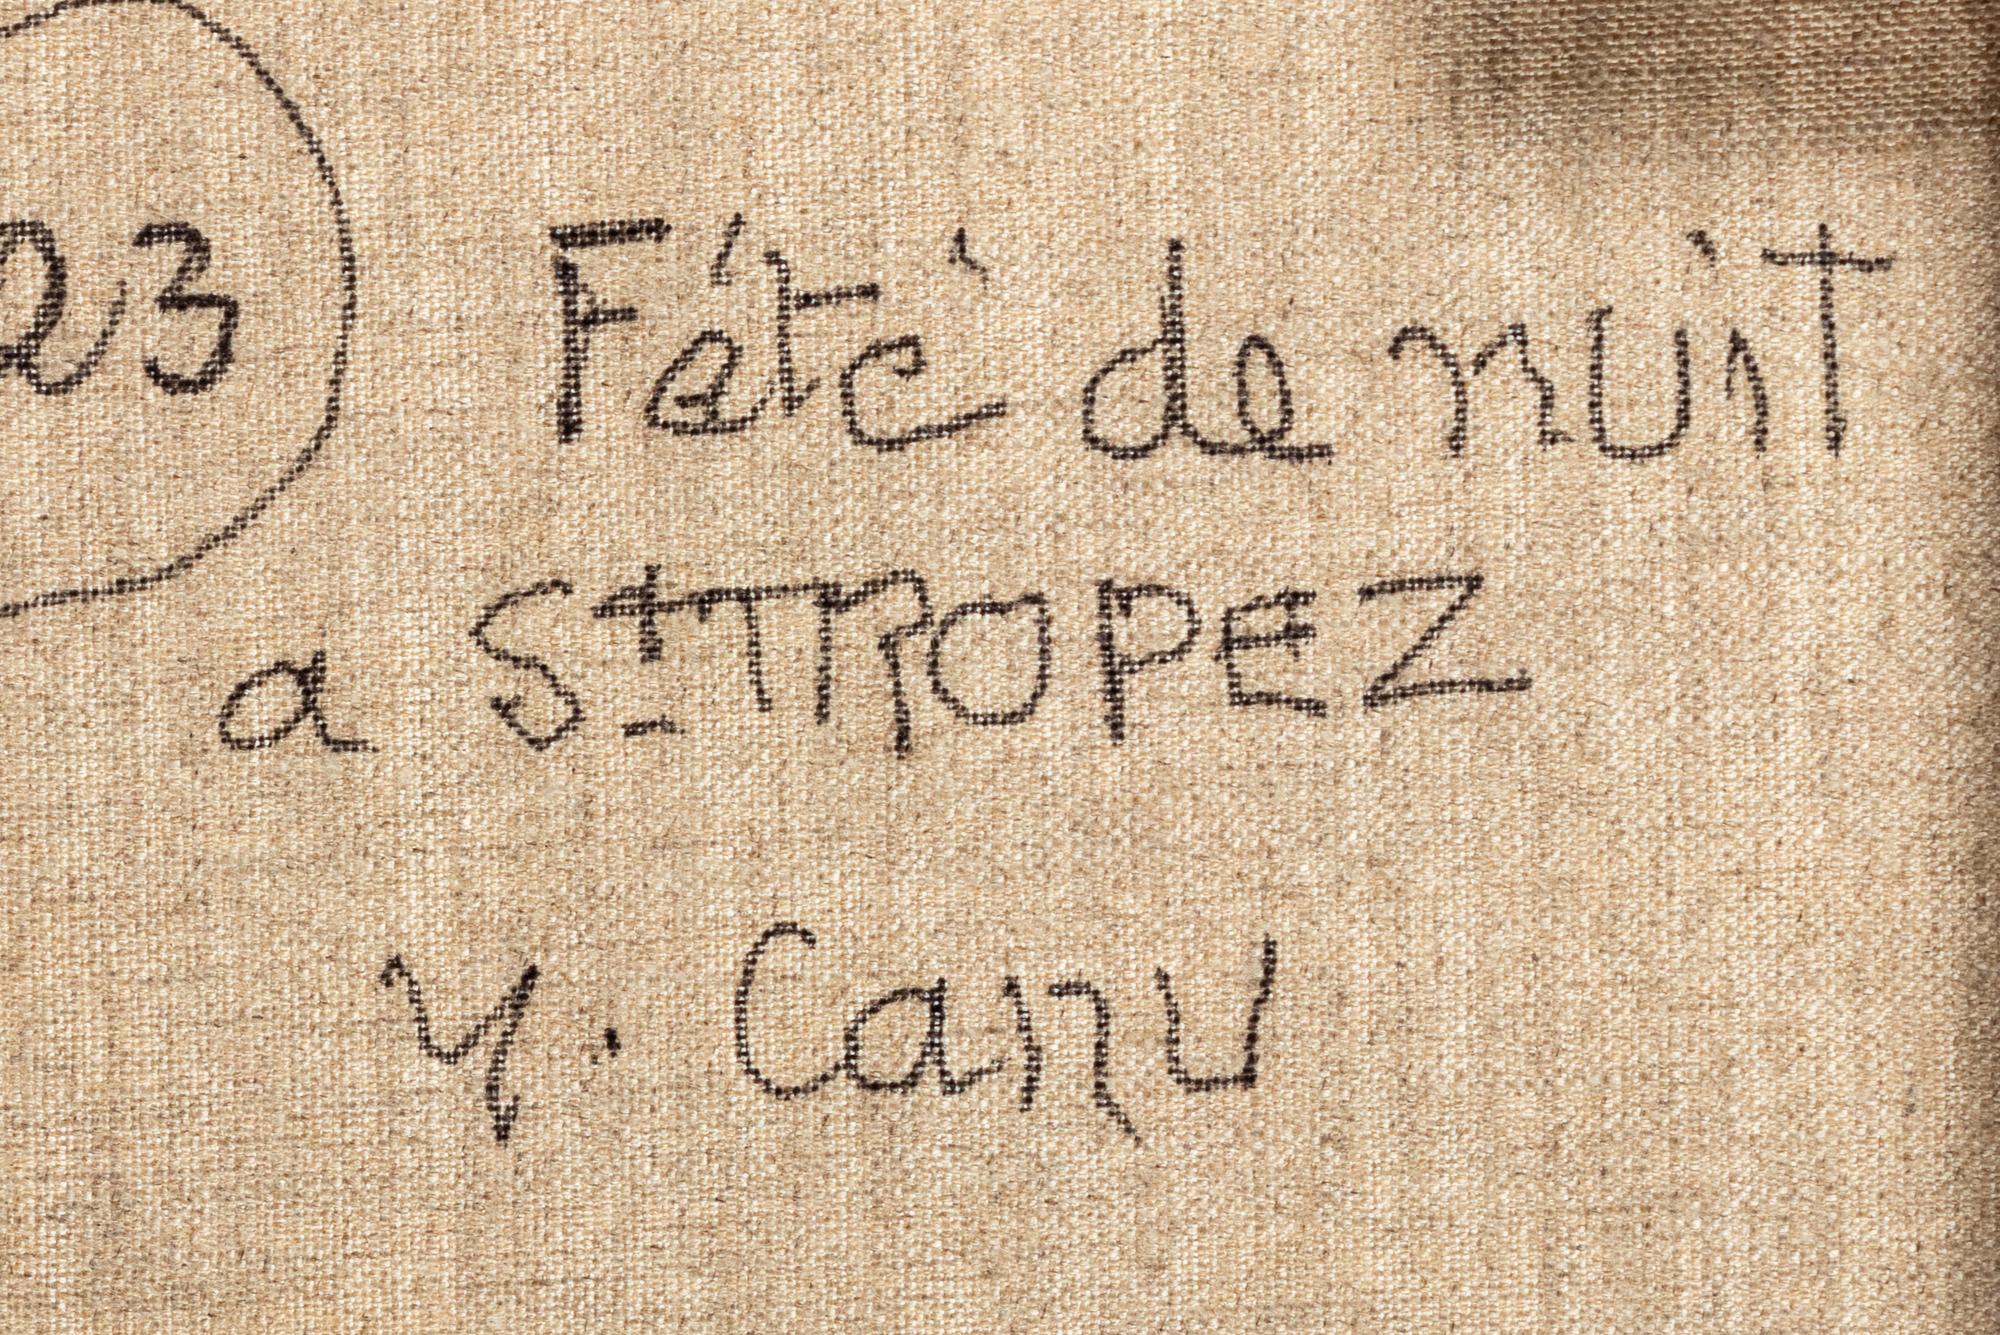 23 Fété de nuit
a St TROPEZ
Y. Canu